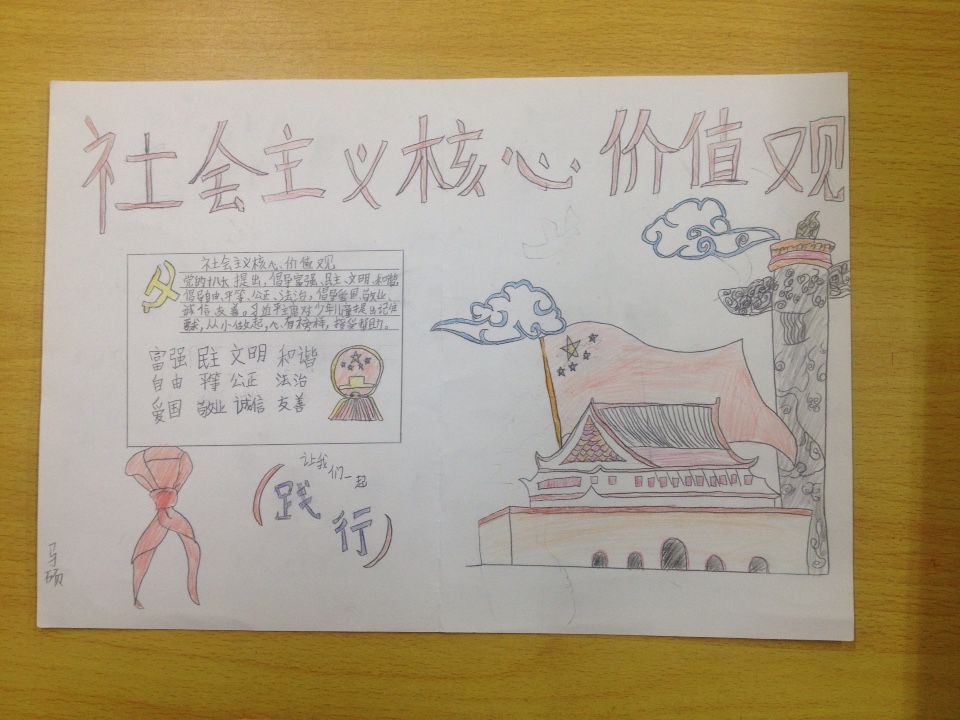 社会主义核心价值观
社会主义核心价值观
党的十八大提出，倡导富强、民主、文明、和谐
倡导自由、平等、公正、法治，倡导爱国、敬业、
诚信、友善。习近平主席对少年儿童提出记住
要求，从小做起，心有榜样，接受帮助。
富强 民主 文明 和谐
自由 平等 公正 法治
爱国 敬业 诚信 友善
让我们一起
（践
行）
马硕